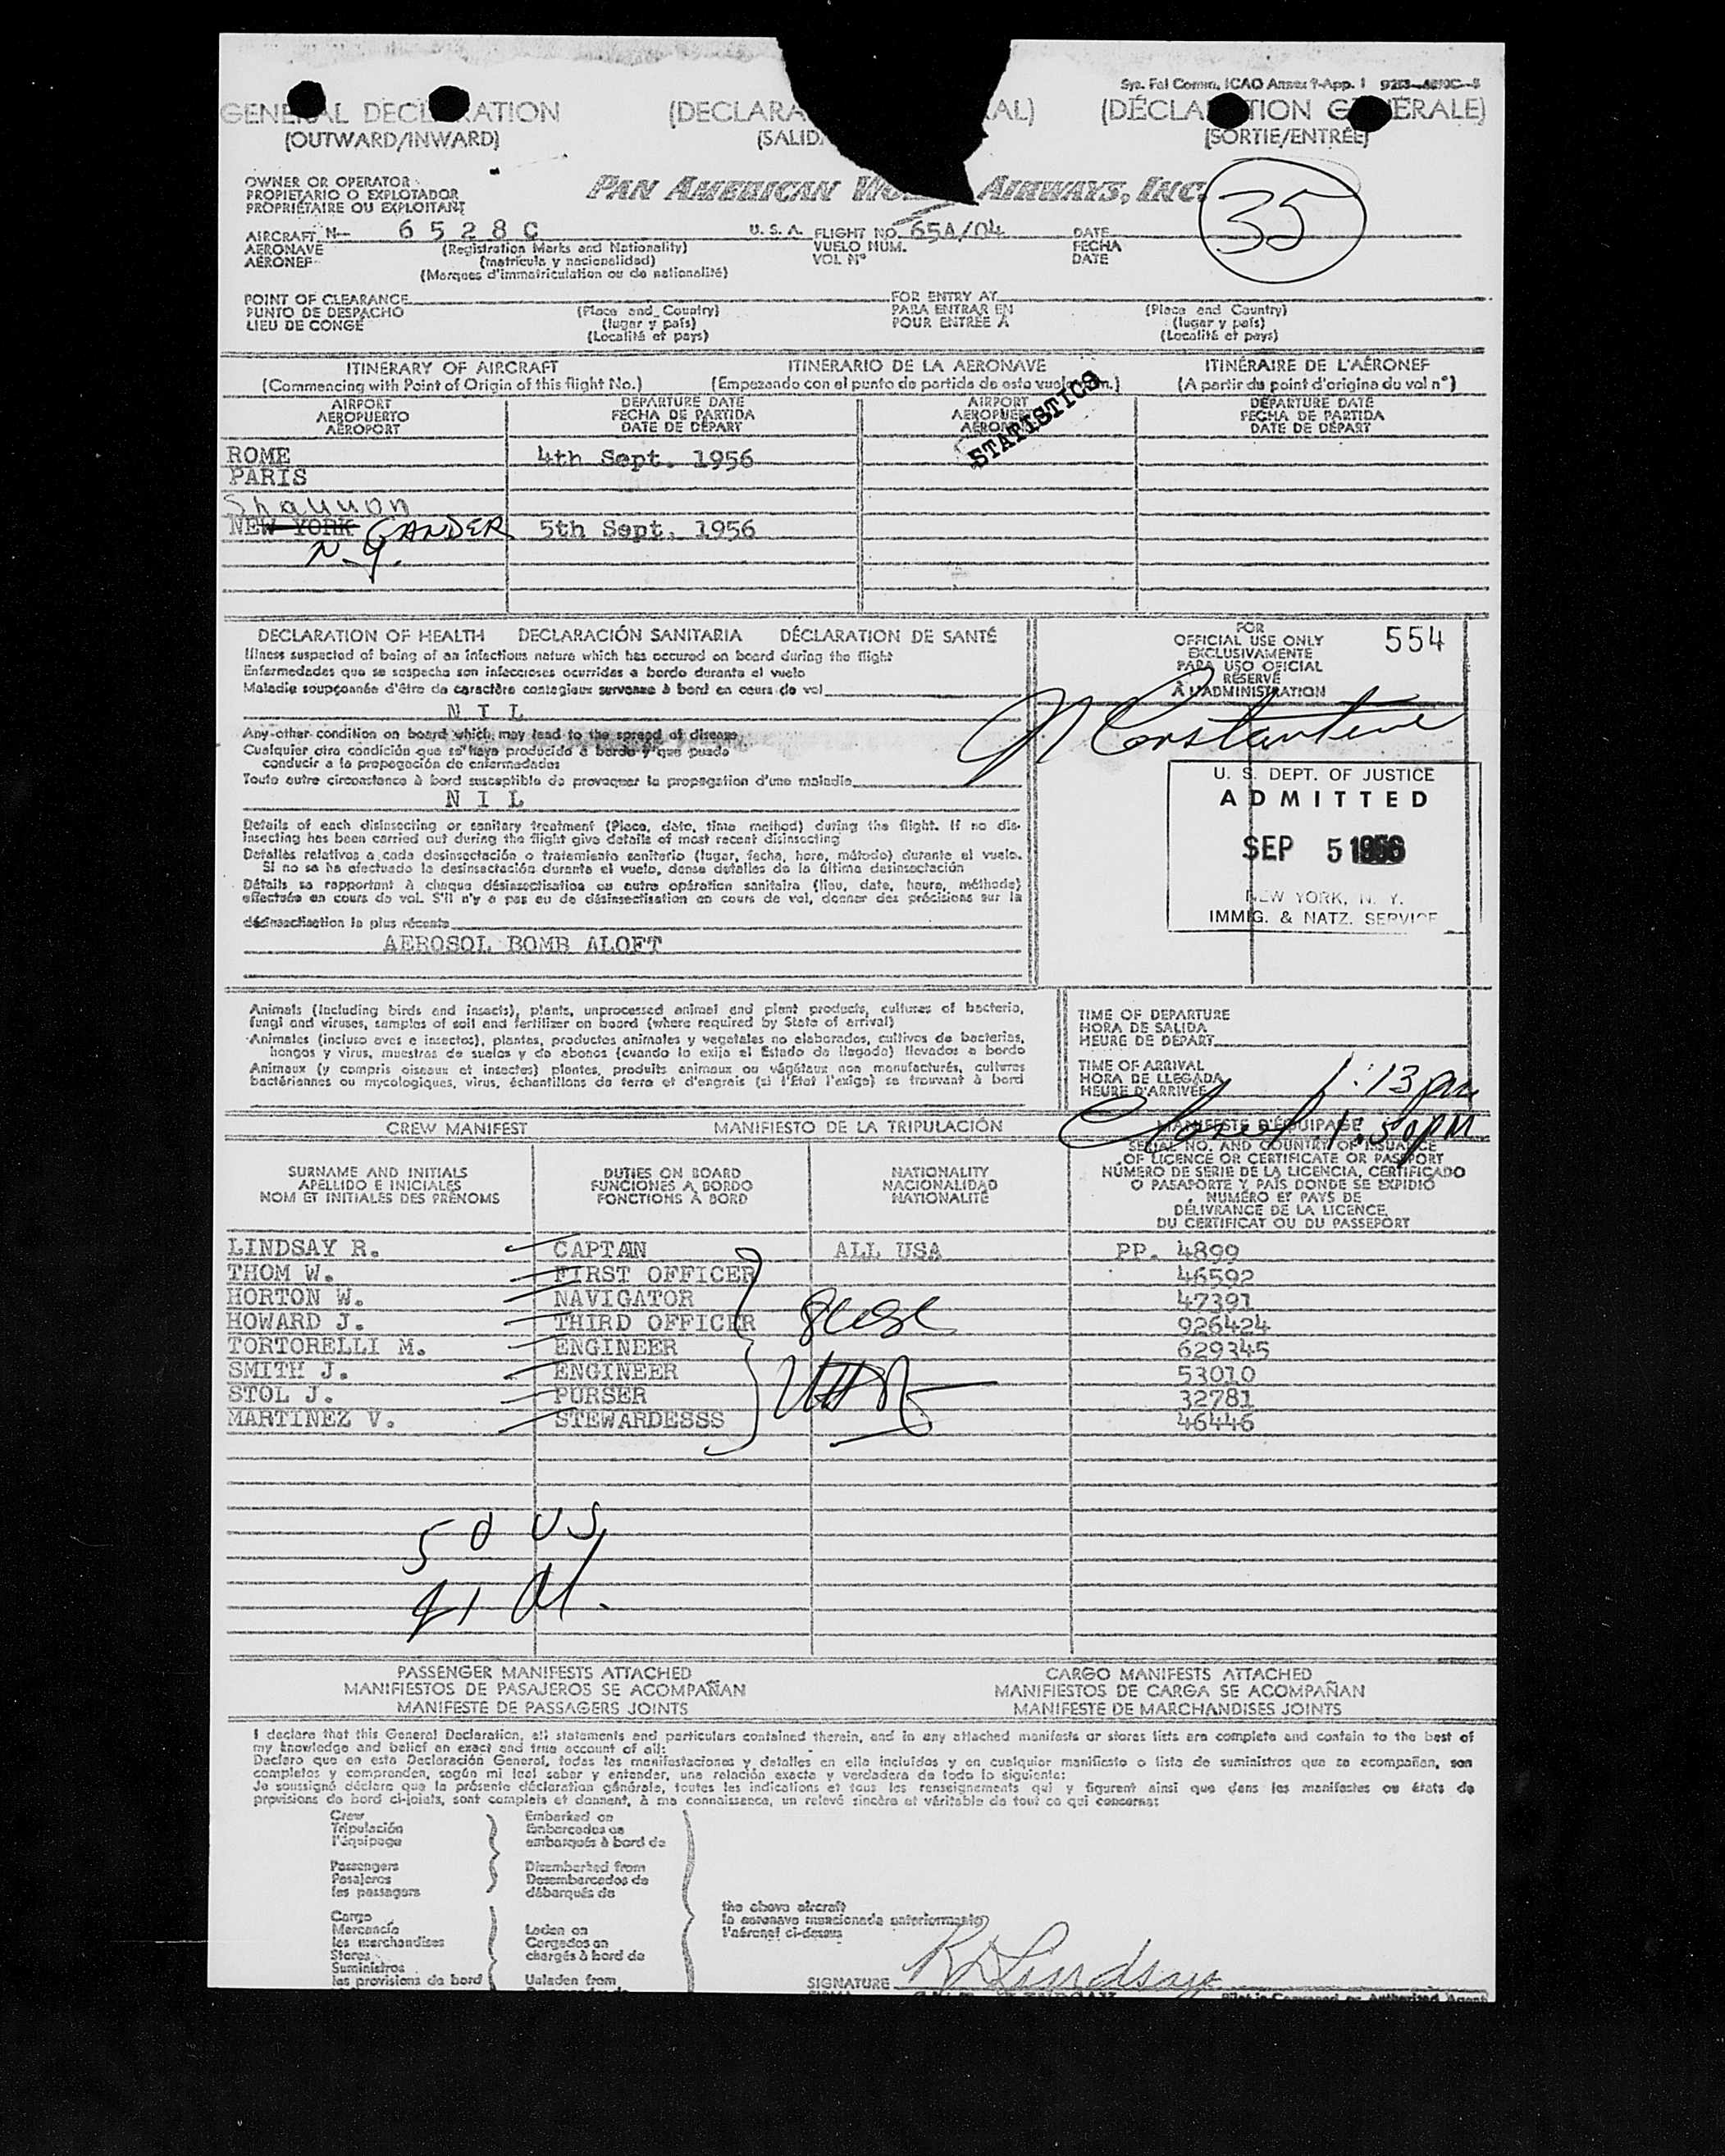 Sys. Fal Comm. ICAO Annex 9-App. 1
GENERAL DECLARATION (DECLARA AL) (DÉCLARATION GÉNÉRALE)
(OUTWARD/INWARD) (SALID (SORTIE/ENTRÉE)
OWNER OR OPERATOR
PROPIETARIO O EXPLOTADOR
PROPRIÉTAIRE OU EXPLOITANT
PAN AMERICAN WO AIRWAYS, INC.
35
AIRCRAFT N— 6528C U.S.A. FLIGHT NO. 65A/04 DATE
AERONAVE (Registration Marks and Nationality) VUELO NUM. FECHA
AÉRONEF (matrícula y nacionalidad) VOL Nº DATE
(Marques d'immatriculation ou de nationalité)
POINT OF CLEARANCE FOR ENTRY AT
PUNTO DE DESPACHO (Place and Country) PARA ENTRAR EN (Place and Country)
LIEU DE CONGÉ (lugar y país) POUR ENTRÉE A (lugar y país)
(Localité et pays) (Localité et pays)
ITINERARY OF AIRCRAFT ITINERARIO DE LA AERONAVE ITINÉRAIRE DE L'AÉRONEF
(Commencing with Point of Origin of this flight No.) (Empezando con el punto de partida de este vuelo num.) (A partir du point d'origine du vol n°)
AIRPORT DEPARTURE DATE AIRPORT DEPARTURE DATE
AEROPUERTO FECHA DE PARTIDA AEROPUERTO FECHA DE PARTIDA
AÉROPORT DATE DE DÉPART AÉROPORT DATE DE DÉPART
STATISTICS
ROME 4th Sept. 1956
PARIS
Shannon
NEW YORK GANDER 5th Sept. 1956
N.Y.
DECLARATION OF HEALTH DECLARACIÓN SANITARIA DÉCLARATION DE SANTÉ
Illness suspected of being of an infectious nature which has occured on board during the flight
Enfermedades que se sospecha son infecciosas ocurridas a bordo durante el vuelo
Maladie soupçonnée d'être de caractère contagieux survenue à bord en cours de vol
NIL
Any other condition on board which may lead to the spread of disease
Cualquier otra condición que se haya producido a bordo y que pueda
conducir a la propagación de enfermedades
Toute autre circonstance à bord susceptible de provoquer la propagation d'une maladie
NIL
Details of each disinsecting or sanitary treatment (Place, date, time method) during the flight. If no dis-
insecting has been carried out during the flight give details of most recent disinsecting
Detalles relativos a cada desinsectación o tratamiento sanitario (lugar, fecha, hora, método) durante el vuelo.
Si no se ha efectuado la desinsectación durante el vuelo, dense detalles de la última desinsectación
Détails se rapportant à chaque désinsectisation ou autre opération sanitaire (lieu, date, heure, méthode)
effectuée en cours de vol. S'il n'y a pas eu de désinsectisation en cours de vol, donner des précisions sur la
désinsectisation la plus récente
AEROSOL BOMB ALOFT
FOR
OFFICIAL USE ONLY
EXCLUSIVAMENTE
PARA USO OFICIAL
RÉSERVÉ
À L'ADMINISTRATION
554
N Constantine
U. S. DEPT. OF JUSTICE
ADMITTED
SEP 5 1956
NEW YORK, N. Y.
IMMIG. & NATZ. SERVICE
Animals (including birds and insects), plants, unprocessed animal and plant products, cultures of bacteria,
fungi and viruses, samples of soil and fertilizer on board (where required by State of arrival)
Animales (incluso aves e insectos), plantas, productos animales y vegetales no elaborados, cultivos de bacterias,
hongos y virus, muestras de suelos y de abonos (cuando lo exija el Estado de llegada) llevados a bordo
Animaux (y compris oiseaux et insectes) plantes, produits animaux ou végétaux non manufacturés, cultures
bactériennes ou mycologiques, virus, échantillons de terre et d'engrais (si l'État l'exige) se trouvant à bord
TIME OF DEPARTURE
HORA DE SALIDA
HEURE DE DÉPART
TIME OF ARRIVAL
HORA DE LLEGADA
HEURE D'ARRIVÉE 1:13 pm
Closed 1:50 PM
CREW MANIFEST MANIFIESTO DE LA TRIPULACIÓN MANIFESTE D'ÉQUIPAGE
SERIAL NO. AND COUNTRY OF ISSUANCE
OF LICENCE OR CERTIFICATE OR PASSPORT
SURNAME AND INITIALS DUTIES ON BOARD NATIONALITY NÚMERO DE SERIE DE LA LICENCIA, CERTIFICADO
APELLIDO E INICIALES FUNCIONES A BORDO NACIONALIDAD O PASAPORTE Y PAÍS DONDE SE EXPIDIÓ
NOM ET INITIALES DES PRÉNOMS FONCTIONS À BORD NATIONALITÉ NUMÉRO ET PAYS DE
DÉLIVRANCE DE LA LICENCE,
DU CERTIFICAT OU DU PASSEPORT
LINDSAY R. CAPTAIN ALL USA PP. 4899
THOM W. FIRST OFFICER 46592
HORTON W. NAVIGATOR 47391
HOWARD J. THIRD OFFICER 926424
TORTORELLI M. ENGINEER 629345
SMITH J. ENGINEER 53010
STOL J. PURSER 32781
MARTINEZ V. STEWARDESSS 46446
50 US
41 Al.
PASSENGER MANIFESTS ATTACHED CARGO MANIFESTS ATTACHED
MANIFIESTOS DE PASAJEROS SE ACOMPAÑAN MANIFIESTOS DE CARGA SE ACOMPAÑAN
MANIFESTE DE PASSAGERS JOINTS MANIFESTE DE MARCHANDISES JOINTS
I declare that this General Declaration, all statements and particulars contained therein, and in any attached manifests or stores lists are complete and contain to the best of
my knowledge and belief an exact and true account of all:
Declaro que en esta Declaración General, todas las manifestaciones y detalles en ella incluídos y en cualquier manifiesto o lista de suministros que se acompañan, son
completos y comprenden, según mi leal saber y entender, una relación exacta y verdadera de todo lo siguiente:
Je soussigné déclare que la présente déclaration générale, toutes les indications et tous les renseignements qui y figurent ainsi que dans les manifestes ou états de
provisions de bord ci-joints, sont complets et donnent, à ma connaissance, un relevé sincère et véritable de tout ce qui concerne:
Crew Embarked on
Tripulación Embarcados en
l'équipage embarqués à bord de
Passengers Disembarked from
Pasajeros Desembarcados de
les passagers débarqués de
the above aircraft
la aeronave mencionada anteriormente
l'aéronef ci-dessus
Cargo
Mercancía Laden on
les marchandises Cargados en
Stores chargés à bord de
Suministros
les provisions de bord Unladen from
SIGNATURE R D Lindsay
Pilot in Command or Authorized Agent